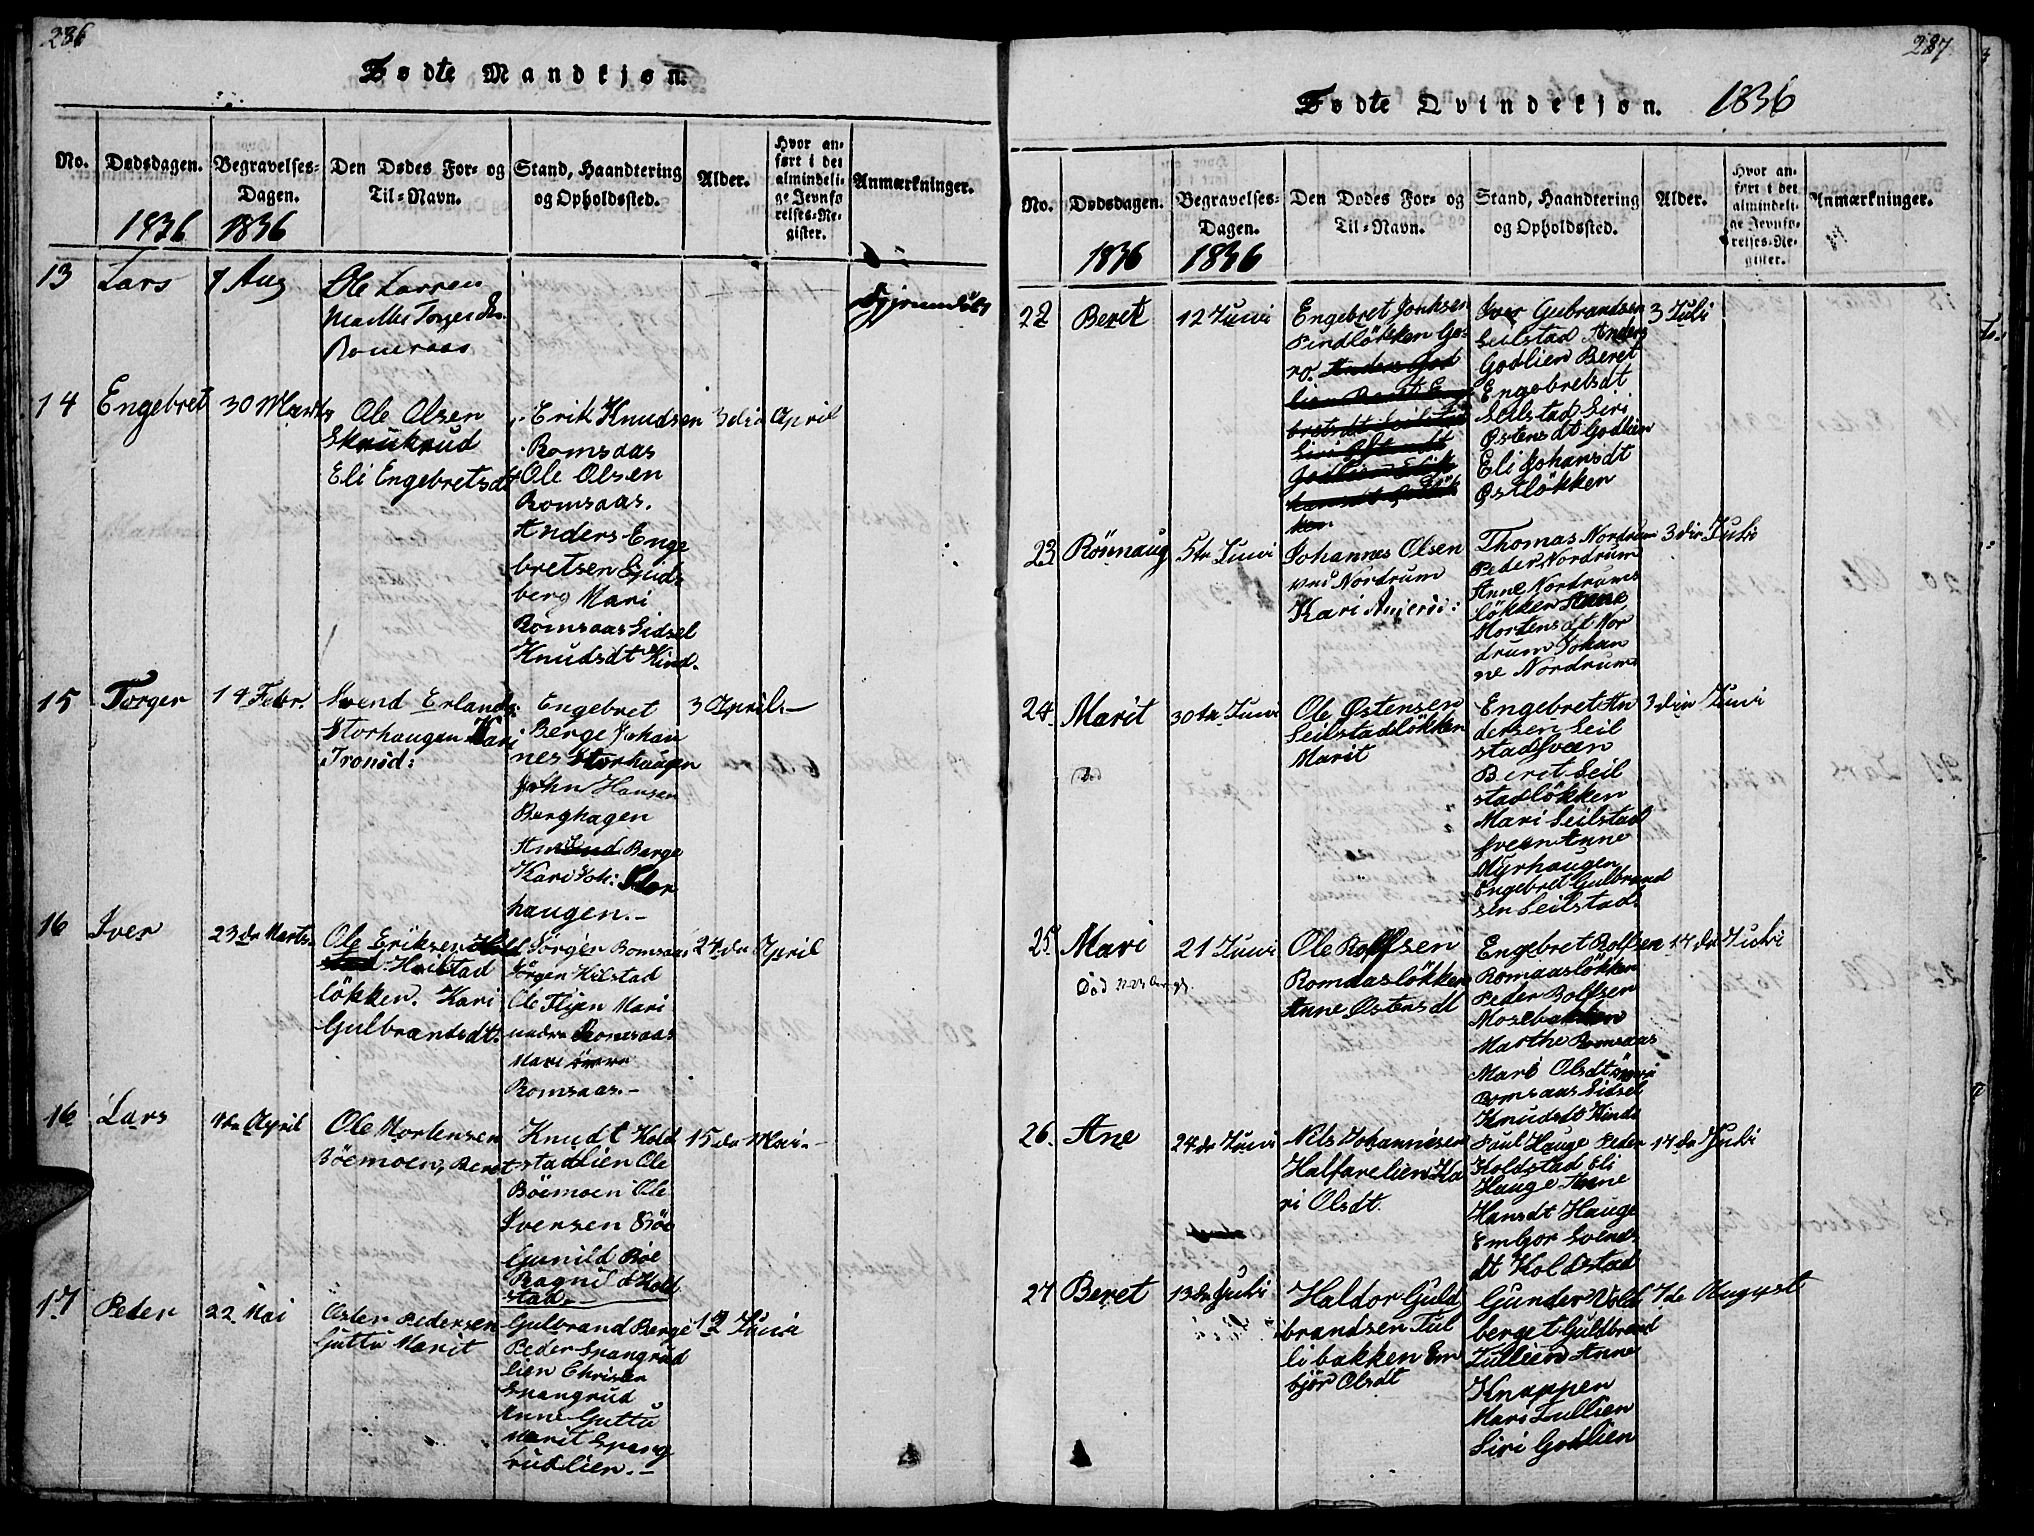 286
Fødte Mandkjøn.
No.
Dødsdagen.
Begravelses-
Dagen.
Den Dødes For- og
Til-Navn.
Stand, Haandtering
og Opholdssted.
Alder.
Hvor an-
ført i det
almindeli-
ge Jevnfø
relses-Re-
gister.
Anmærkninger.
1836
1836
13
Lars
7 Aug
Ole Larsen
Marthe
14
Engebret
30 Marts
Ole Olsen
Skrukrud
Eli Engebretsdt
Erik Knudsen
Romsaas
Ole Olsen
Romsaas.
Anders Enge
bretsen
berg Mari
Romsaas Sidsel
Knudsdt Kind.
3die April
15
Torger
14 Febr.
Svend Erlands:
Storhaugen Kari
Engebret
Berge Johan
nes Storhaugen
John Hansen
Berghagen
Amund Berge
Kari Joh: Stor
haugen.-
3 April.-
16
Iver
23de Marts.
Ole Eriksen
Heilstad
løkken. Kari
Gulbrandsdt.
Jørgen Romsaas
Jørgen Heilstad
Ole Mari
Romsaas
Mari
Romsaas.-
24de April
16
Lars
April
Ole Mortensen
Böemoen, Beret
Knudt Hold
stadlien Ole
Böemoen Ole
Iversen Böe
Gunild Böe
Ragnild Hold
stad.-
15de Mai.-
17
Peder
22 Mai
Østen Pedersen
Guttu Marit
Gulbrand Berge
Peder Spangrud
lien Christen
Spangrud
Anne Guttu
Marit Spang
rudlien.-
12 Juni
287
Fødte Qvindekjøn. 1836
No.
Dødsdagen.
Begravelses-
Dagen.
Den Dødes For- og
Til-Navn.
Stand, Haandtering
og Opholdssted.
Alder.
Hvor an-
ført i det
almindeli-
ge Jevnfø-
relses-Re-
gister.
Anmærkninger.
1836
1836
22
Beret
12 Juni
Engebret
Iver Gubrandsen
Seilstad Anders
Godlien Beret
Engebretsdt
Seilstad Siri
Østensdt Godlien
Eli Johansdt
Østløkken
3 Juli
23
Rönnaug
5te Juni
Johannes Olsen
Nordrum
Kari
Thomas Nordrum
Peder Nordrum
Anne Nordrums
løkken Anne
Mortensdt Nor
drum Johan
ne Nordrum
3die Juli
24.
Marit
30te Juni
Ole Østensen
Seilstadløkken
Marit
Engebret An
dersen Seil
stadsveen
Berit Seil
stadløkken
Mari Seilstad
sveen Anne
Myrhaugen
Engebret Gulbrand
sen Seilstad.
3die Juni
25
Mari
21 Juni
Ole Rolfsen
Romsaasløkken
Anne Østensdt
Engebret Rolfsen
Romsaasløkken
Peder Rolfsen
Mosebakken
Marthe Romsaas
Mari Olsdt
Romsaas Sidsel
Knudsdt Kinde
17de Juli
26.
Ane
24de Juni
Nils Johannesen
Halfarelien Ka
ri Olsdt.
Paul Hauge Peder
Koldstad Eli
Hauge Anne
Hansdt Hauge
Embjor Svends
dt Koldstad
17de Juli
27
Beret
13de Juli
Haldor Guld
brandsen Tul
libakken Em
björ Olsdt
Gunder Vold
berget Guldbrand
Tullien Anne
Knappen
Mari Tullien
Siri Godlien
7de August